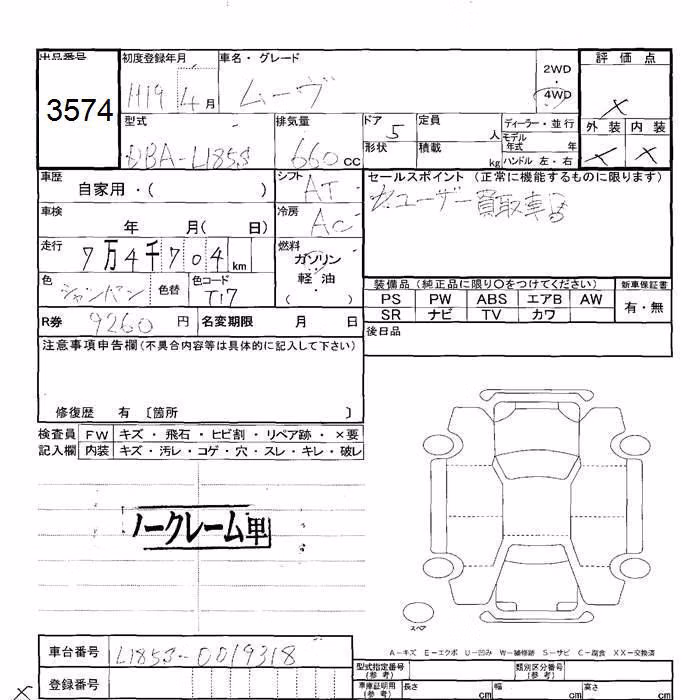 出品番号 初度登録年月 車名・グレード 2WD 評価点
3574 H19 4月 ムーヴ 4WD ×
型式 排気量 ドア 定員 ディーラー・並行 外装 内装
DBA-L185S 660cc 5 人 モデル年式 年 × ×
形状 積載 kg ハンドル 左・右
車歴 シフト セールスポイント (正常に機能するものに限ります)
自家用・( ) AT ユーザー買取車
車検 冷房
年 月( 日) AC
走行 燃料
7万4千704km ガソリン
軽油
( )
色 色替 色コード 装備品 (純正品に限り〇をつけてください) 新車保証書
シャンパン T17 PS PW ABS エアB AW 有・無
SR ナビ TV カワ
R券 9260円 名変期限 月 日 後日品
注意事項申告欄(不具合内容等は具体的に記入して下さい)
修復歴 有 〔箇所 〕
検査員 FW キズ・飛石・ヒビ割・リペア跡・×要
記入欄 内装 キズ・汚レ・コゲ・穴・スレ・キレ・破レ
ノークレーム車
スペア
A－キズ E－エクボ U－凹み W－補修跡 S－サビ C－腐食 XX－交換済
車台番号 L185S-0019318
登録番号
型式指定番号(参考) 類別区分番号(参考)
×
車庫証明用(参考) 長さ cm 幅 cm 高さ cm